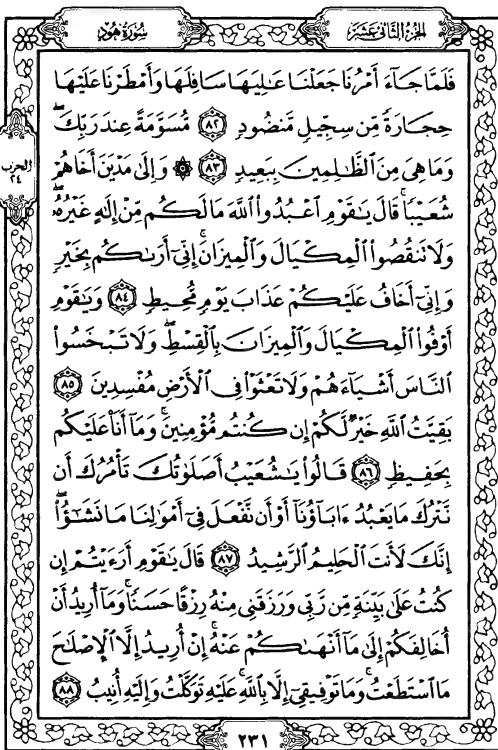 الجزء الثاني عشر
سورة هود
فَلَمَّا جَآءَ أَمْرُنَا جَعَلْنَا عَٰلِيَهَا سَافِلَهَا وَأَمْطَرْنَا عَلَيْهَا
حِجَارَةً مِّن سِجِّيلٍ مَّنضُودٍ ٨٢ مُّسَوَّمَةً عِندَ رَبِّكَۖ
وَمَا هِىَ مِنَ ٱلظَّٰلِمِينَ بِبَعِيدٍ ٨٣ ۞ وَإِلَىٰ مَدْيَنَ أَخَاهُمْ
شُعَيْبًاۚ قَالَ يَٰقَوْمِ ٱعْبُدُوا۟ ٱللَّهَ مَا لَكُم مِّنْ إِلَٰهٍ غَيْرُهُۥۖ
وَلَا تَنقُصُوا۟ ٱلْمِكْيَالَ وَٱلْمِيزَانَۚ إِنِّىٓ أَرَىٰكُم بِخَيْرٍ
وَإِنِّىٓ أَخَافُ عَلَيْكُمْ عَذَابَ يَوْمٍ مُّحِيطٍ ٨٤ وَيَٰقَوْمِ
أَوْفُوا۟ ٱلْمِكْيَالَ وَٱلْمِيزَانَ بِٱلْقِسْطِۖ وَلَا تَبْخَسُوا۟
ٱلنَّاسَ أَشْيَآءَهُمْ وَلَا تَعْثَوْا۟ فِى ٱلْأَرْضِ مُفْسِدِينَ ٨٥
بَقِيَّتُ ٱللَّهِ خَيْرٌ لَّكُمْ إِن كُنتُم مُّؤْمِنِينَۚ وَمَآ أَنَا۠ عَلَيْكُم
بِحَفِيظٍ ٨٦ قَالُوا۟ يَٰشُعَيْبُ أَصَلَوٰتُكَ تَأْمُرُكَ أَن
نَّتْرُكَ مَا يَعْبُدُ ءَابَآؤُنَآ أَوْ أَن نَّفْعَلَ فِىٓ أَمْوَٰلِنَا مَا نَشَٰٓؤُا۟ۖ
إِنَّكَ لَأَنتَ ٱلْحَلِيمُ ٱلرَّشِيدُ ٨٧ قَالَ يَٰقَوْمِ أَرَءَيْتُمْ إِن
كُنتُ عَلَىٰ بَيِّنَةٍ مِّن رَّبِّى وَرَزَقَنِى مِنْهُ رِزْقًا حَسَنًاۚ وَمَآ أُرِيدُ أَنْ
أُخَالِفَكُمْ إِلَىٰ مَآ أَنْهَىٰكُمْ عَنْهُۚ إِنْ أُرِيدُ إِلَّا ٱلْإِصْلَٰحَ
مَا ٱسْتَطَعْتُۚ وَمَا تَوْفِيقِىٓ إِلَّا بِٱللَّهِۚ عَلَيْهِ تَوَكَّلْتُ وَإِلَيْهِ أُنِيبُ ٨٨
الحزب
٢٤
٢٣١